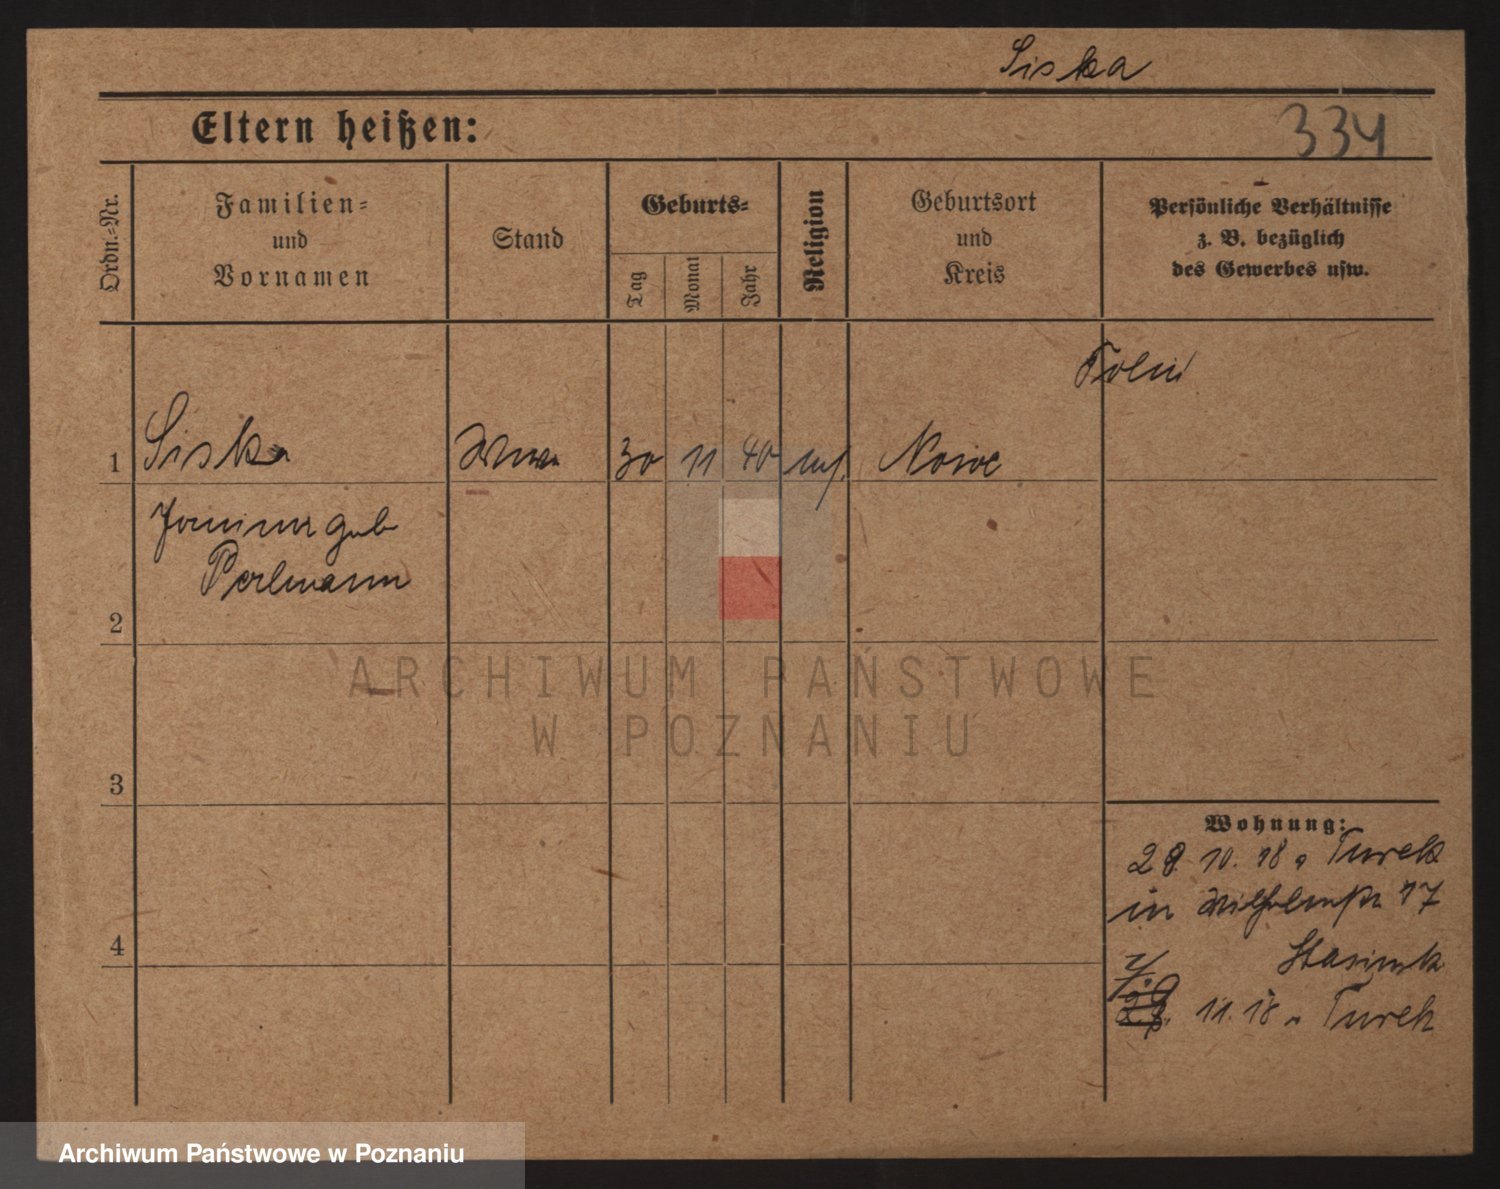 Siska
Eltern heißen:
334
Ordn.-Nr.
Familien-
und
Vornamen
Stand
Geburts-
Tag
Monat
Jahr
Religion
Geburtsort
und
Kreis
Persönliche Verhältnisse
z. B. bezüglich
des Gewerbes usw.
1
Siska
30
11
40
Nowe
2
geb
Perlmann
ARCHIWUM PAŃSTWOWE
W POZNANIU
3
4
Wohnung:
28. 10. 18 Turek
in 17
11. 18 Turek
Archiwum Państwowe w Poznaniu